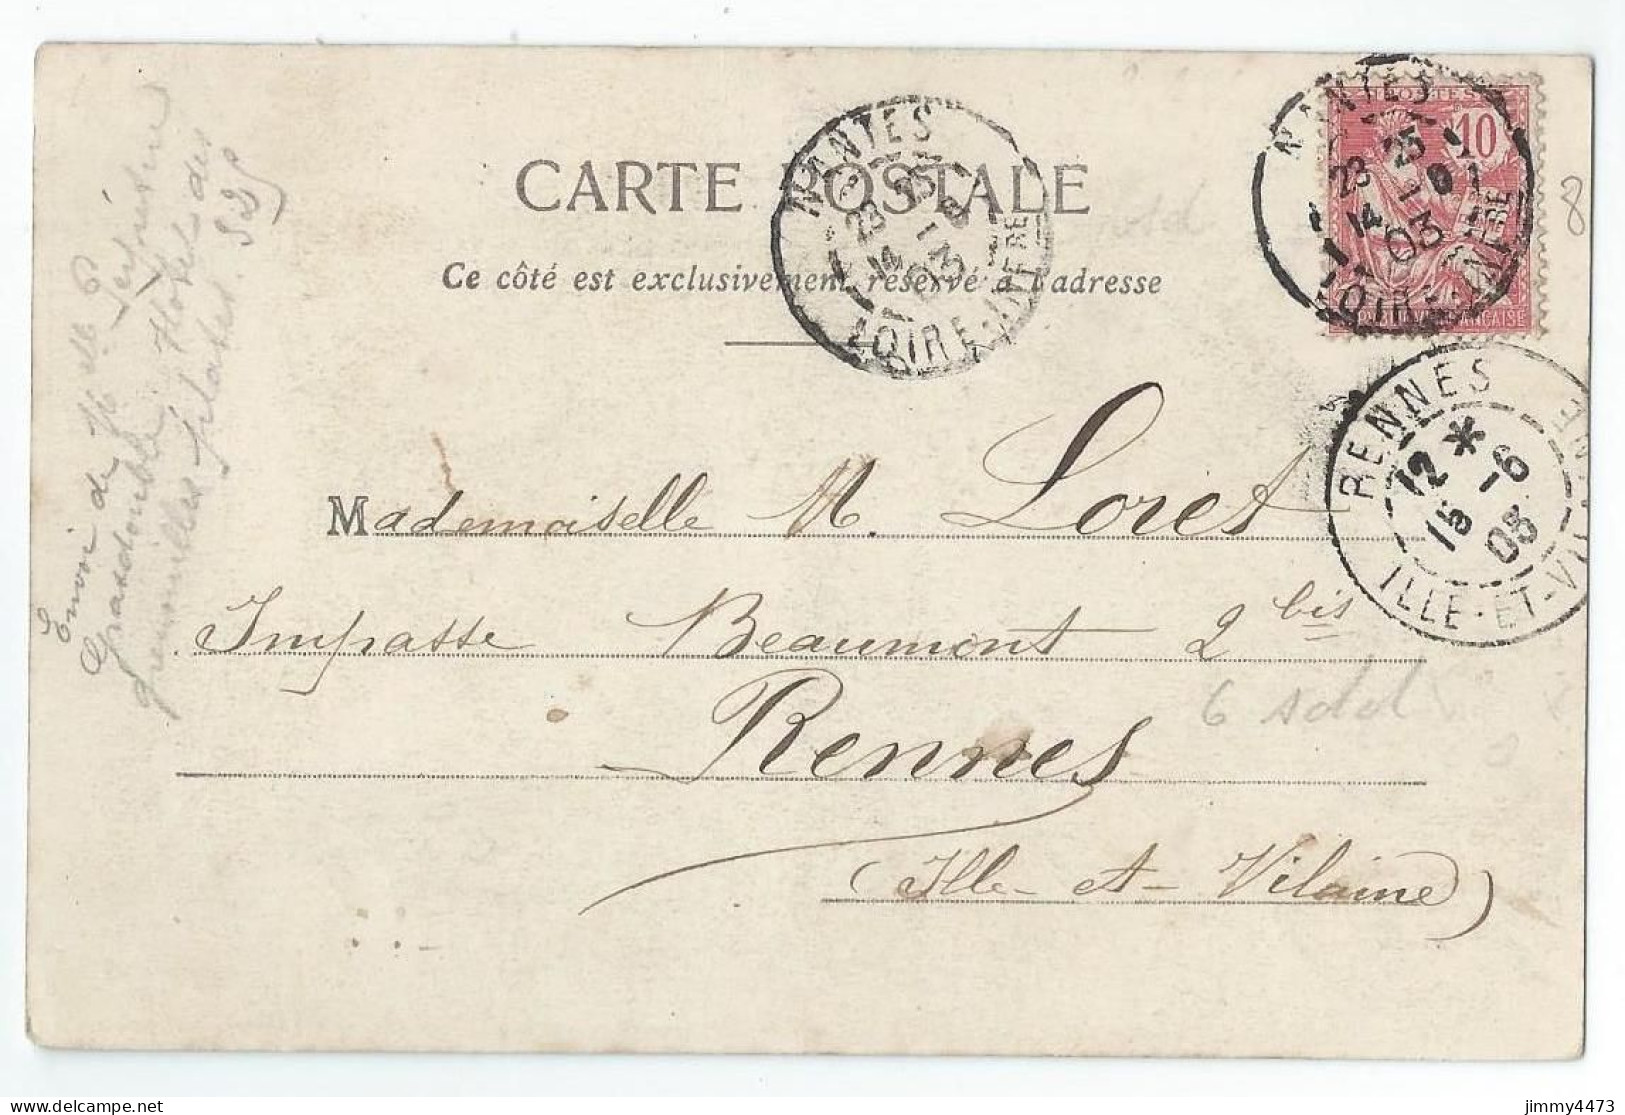 CARTE POSTALE
Ce côté est exclusivement réservé à l'adresse
NANTES
23 25
14 6
03
LOIRE-INFRE
NANTES
23 25
14 6
03
LOIRE-INFRE
POSTES
10
RÉPUBLIQUE FRANÇAISE
8
RENNES
12 * -6
15 03
ILLE-ET-VILAINE
Mademoiselle M. Loret
Impasse Beaumont 2 bis
6 sdd
Rennes
(Ille-et-Vilaine)
Envoi de Melle
Grasdouble
Hotel des
S.2.S
jimmy4473
delcampe.net